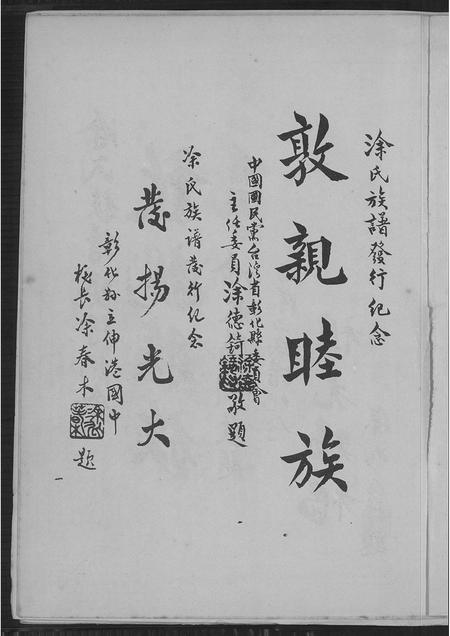 涂氏族譜發行紀念
敦親睦族
中國國民黨台灣省彰化縣委員會
主任委員涂德錡敬題
涂氏族譜發行紀念
發揚光大
彰化縣立伸港國中
校長涂春木題